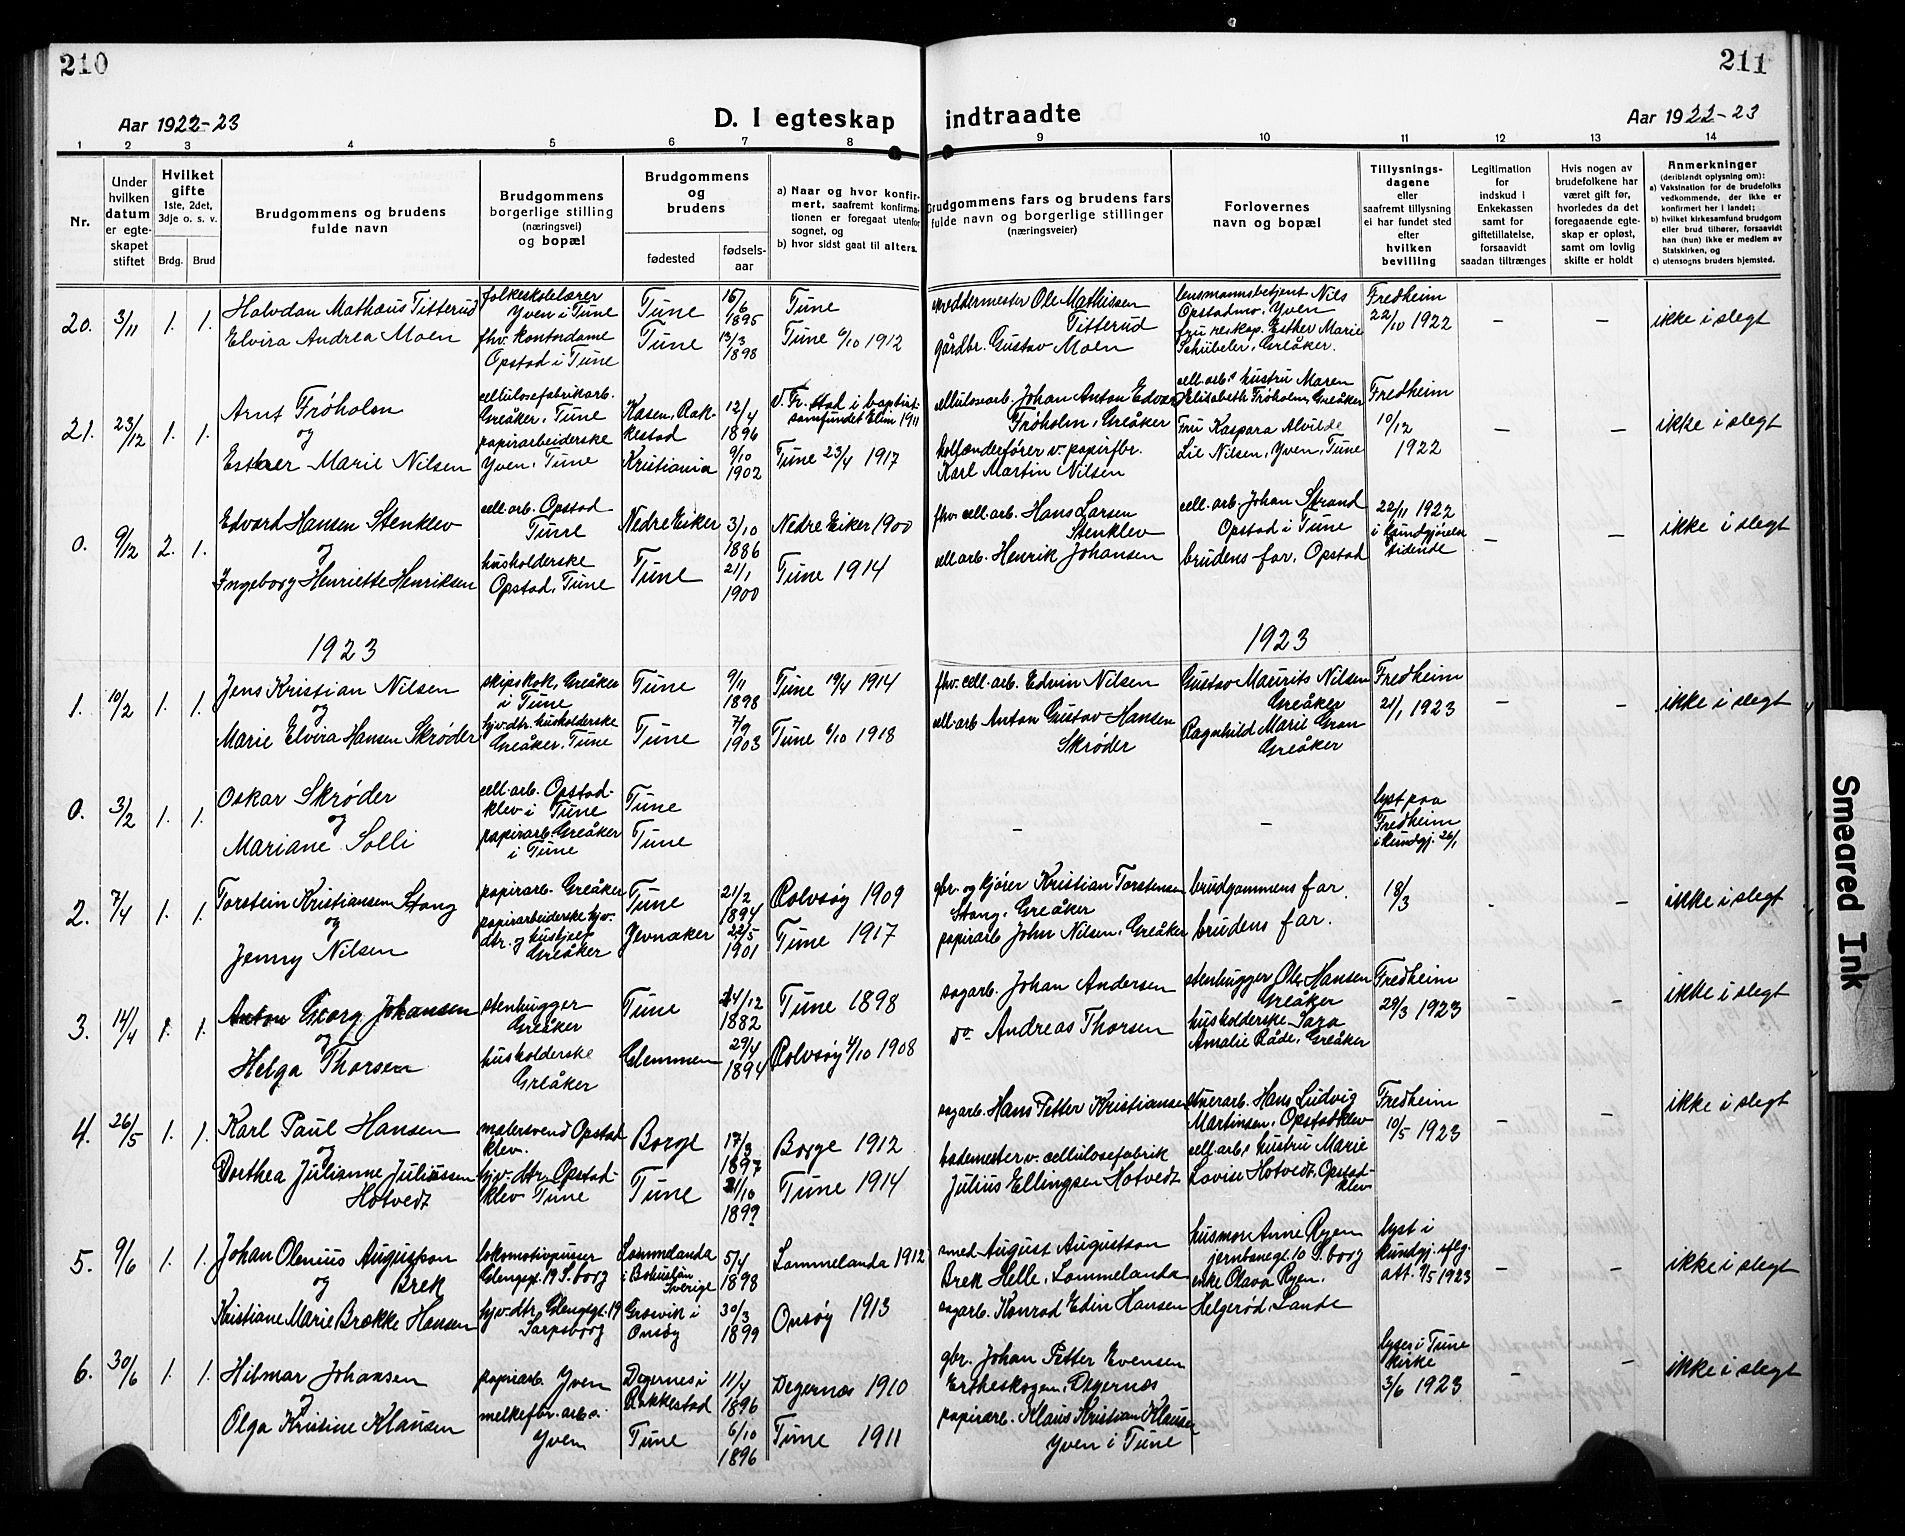 210
211
Aar 1922-23
D. I egteskap indtraadte
Aar 1922-23
1 2 3 4 5 6 7 8 9 10 11 12 13 14
Nr.
Under hvilken datum er egteskapet stiftet
Hvilket gifte 1ste, 2det, 3dje o. s. v.
Brdg. Brud
Brudgommens og brudens fulde navn
Brudgommens borgerlige stilling (næringsvei) og bopæl
Brudgommens og brudens
fødested
fødsels-aar
a) Naar og hvor konfirmert, saafremt konfirmationen er foregaat utenfor sognet, og
b) hvor sidst gaat til alters.
Brudgommens fars og brudens fars fulde navn og borgerlige stillinger (næringsveier)
Forlovernes navn og bopæl
Tillysningsdagene eller saafremt tillysning ei har fundet sted efter hvilken bevilling
Legitimation for indskud i Enkekassen samt for giftetillatelse, forsaavidt saadan tiltrænges
Hvis nogen av brudefolkene har været gift før, hvorledes da det foregaaende egteskap er opløst, samt om lovlig skifte er holdt
Anmerkninger (deriblandt oplysning om): a) Vaksination for de brudefolks vedkommende, der ikke er konfirmert her i landet; b) hvilket kirkesamfund brudgom eller brud tilhører, forsaavidt han (hun) ikke er medlem av Statskirken, og c) utensogns bruders hjemsted.
20. 3/11 1. 1. Halvdan Mathæus Titterud folkeskolelærer Yven i Tune Tune 15/6 1895 Tune
Elvira Andrea Moen fhv. kontordame Opstad i Tune Tune 13/3 1898 Tune 6/10 1912
Ole Mathissen Titterud
gårdbr. Gustav Moen
lensmannsbetjent Nils Opstadmo, Yven
Esther Marie Schübeler, Greåker.
Fredheim 22/10 1922
– – ikke i slegt
21. 23/12 1. 1. Arnt Frøholm cellulosefabrikarb. Greåker, Tune Kasen, Rakkestad 12/4 1896 v. Fr.stad i baptistsamfundet Elim 1911
og
Esther Marie Nilsen papirarbeiderske Yven, Tune Kristiania 9/10 1902 Tune 23/4 1917
cellulosearb. Johan Anton Edvard Frøholm, Greåker
hollenderfører v. papirfbr. Karl Martin Nilsen
cell.arb.s hustru Maren Elisabeth Frøholm, Greåker
Fru Kaspara Alvilde Lie Nilsen, Yven, Tune
Fredheim 10/12 1922
– – ikke i slegt
0. 9/12 2. 1. Edvard Hansen Stenklev cell.arb. Opstad Tune Nedre Eiker 3/10 1886 Nedre Eiker 1900
og
Ingeborg Henriette Henriksen husholderske Opstad, Tune Tune 21/1 1900 Tune 1914
fhv. cell.arb. Hans Larsen Stenklev
cell.arb. Henrik Johansen
cell.arb. Johan Strand Opstad i Tune
brudens far, Opstad
22/11 1922 i Kundgjørelsestidende
– – ikke i slegt
1923
1923
1. 10/2 1. 1. Jens Kristian Nilsen skipskok, Greåker i Tune Tune 9/11 1898 Tune 19/4 1914
og
Marie Elvira Hansen Skrøder hjv. dtr. husholderske Greåker, Tune Tune 7/9 1903 Tune 6/10 1918
fhv. cell.arb. Edvin Nilsen
cell.arb. Anton Gustav Hansen Skrøder
Gustav Maurits Nilsen Greåker
Ragnhild Marie Gran Greåker
Fredheim 21/1 1923
– – ikke i slegt
0. 3/2 1. 1. Oskar Skrøder cell.arb. Opstadklev i Tune Tune
og
Mariane Solli papirarb. Greåker i Tune Tune
– –
lyst paa Fredheim i kundgj. 26/1
2. 7/4 1. 1. Torstein Kristiansen Stang papirarb. Greåker Tune 21/2 1894 Rolvsøy 1909
og
Jenny Nilsen papirarbeiderske hjv. dtr. og hushjelp Greåker Jevnaker 22/5 1901 Tune 1917
gbr. og kjører Kristian Torstensen Stang, Greåker
papirarb. John Nilsen, Greåker
brudgommens far.
brudens far.
18/3
– – ikke i slegt
3. 14/4 1. 1. Anton Georg Johansen stenhugger Greåker Tune 24/12 1882 Tune 1898
og
Helga Thorsen husholderske Greåker Glemmen 29/4 1894 Rolvsøy 4/10 1908
sagarb. Johan Andersen
do Andreas Thorsen
stenhugger Ole Hansen Greåker
husholderske Sara Amalie Råde, Greåker
Fredheim 29/3 1923
– – ikke i slegt
4. 26/5 1. 1. Karl Paul Hansen malersvend Opstadklev. Borge 17/3 1897 Borge 1912
og
Dorthea Julianne Juliussen Hotvedt hjv. dtr. Opstadklev Tune Tune 2/10 1899 Tune 1914
sagarb. Hans Petter Kristiansen
bademester v. cellulosefabrik Julius Ellingsen Hotvedt
Hans Ludvig Martinsen, Opstadklev
cell.arb.s hustru Marie Lovise Hotvedt, Opstadklev
Fredheim 10/5 1923
– – ikke i slegt
5. 9/6 1. 1. Johan Olenius Augustson Brek lokomotivpusser Glengsgt. 19 S.borg Lommelanda i Bohuslän Sverige 5/4 1898 Lommelanda 1912
og
Kristiane Marie Brække Hansen hjv. dtr. Glengsgt. 19 Sarpsborg Gresvik i Onsøy 30/3 1899 Onsøy 1913
smed August Augustson Brek Helle, Lommelanda
sagarb. Konrad Edin Hansen
husmor Anne Ryen jernbanegt. 10 S.borg
enke Olava Ryen, Helgerød, Lande
lyst i kundgj. iflg. att. 7/5 1923
– – ikke i slegt
6. 30/6 1. 1. Hilmar Johansen papirarb. Yven Degernes i Rakkestad 11/4 1896 Degernæs 1910
og
Olga Kristine Klausen melkefbr. arb. Yven Tune 6/10 1896 Tune 1911
gbr. Johan Petter Evensen Ertheskogen, Degernæs
papirarb. Klaus Kristian Klausen Yven i Tune
lyses i Tune kirke 3/6 1923
– – ikke i slegt
Smeared Ink